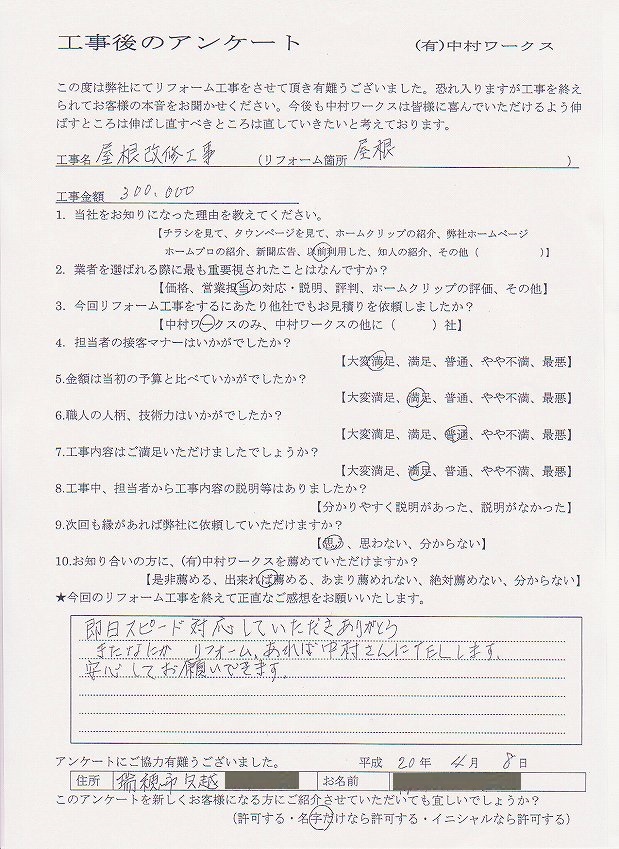 工事後のアンケート (有)中村ワークス
この度は弊社にてリフォーム工事をさせて頂き有難うございました。恐れ入りますが工事を終え
られてお客様の本音をお聞かせください。今後も中村ワークスは皆様に喜んでいただけるよう伸
ばすところは伸ばし直すべきところは直していきたいと考えております。
工事名 屋根改修工事 (リフォーム箇所 屋根 )
工事金額 300,000
1. 当社をお知りになった理由を教えてください。
【チラシを見て、タウンページを見て、ホームクリップの紹介、弊社ホームページ
ホームプロの紹介、新聞広告、以前利用した、知人の紹介、その他( )】
2. 業者を選ばれる際に最も重要視されたことはなんですか?
【価格、営業担当の対応・説明、評判、ホームクリップの評価、その他】
3. 今回リフォーム工事をするにあたり他社でもお見積りを依頼しましたか?
【中村ワークスのみ、中村ワークスの他に( )社】
4. 担当者の接客マナーはいかがでしたか?
【大変満足、満足、普通、やや不満、最悪】
5.金額は当初の予算と比べていかがでしたか?
【大変満足、満足、普通、やや不満、最悪】
6.職人の人柄、技術力はいかがでしたか?
【大変満足、満足、普通、やや不満、最悪】
7.工事内容はご満足いただけましたでしょうか?
【大変満足、満足、普通、やや不満、最悪】
8.工事中、担当者から工事内容の説明等はありましたか?
【分かりやすく説明があった、説明がなかった】
9.次回も縁があれば弊社に依頼していただけますか?
【思う、思わない、分からない】
10.お知り合いの方に、(有)中村ワークスを薦めていただけますか?
【是非薦める、出来れば薦める、あまり薦めれない、絶対薦めない、分からない】
★今回のリフォーム工事を終えて正直なご感想をお願いいたします。
即日スピード対応していただきありがとう
またなにか リフォーム、あれば中村さんにTELします。
安心してお願いできます。
アンケートにご協力有難うございました。 平成 20年 4月 8日
住所 瑞穂市 お名前
このアンケートを新しくお客様になる方にご紹介させていただいても宜しいでしょうか?
(許可する・名字だけなら許可する・イニシャルなら許可する)